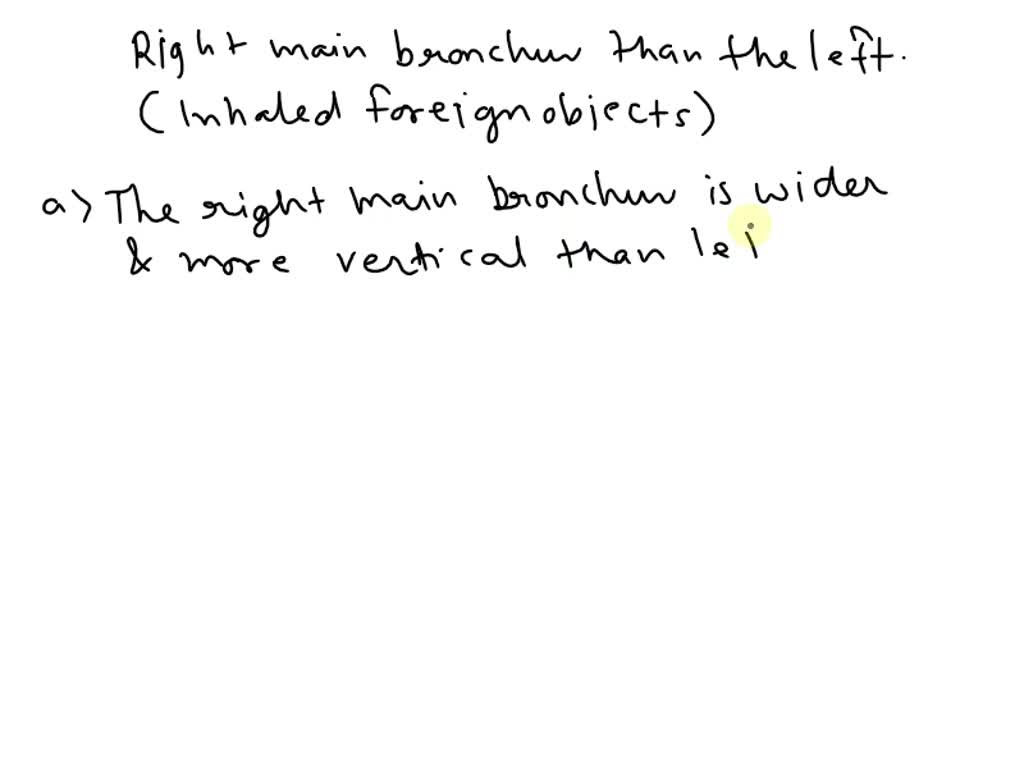 Right main bronchus than the left.
(Inhaled foreign objects)
a) The right main bronchus is wider
& more vertical than lei